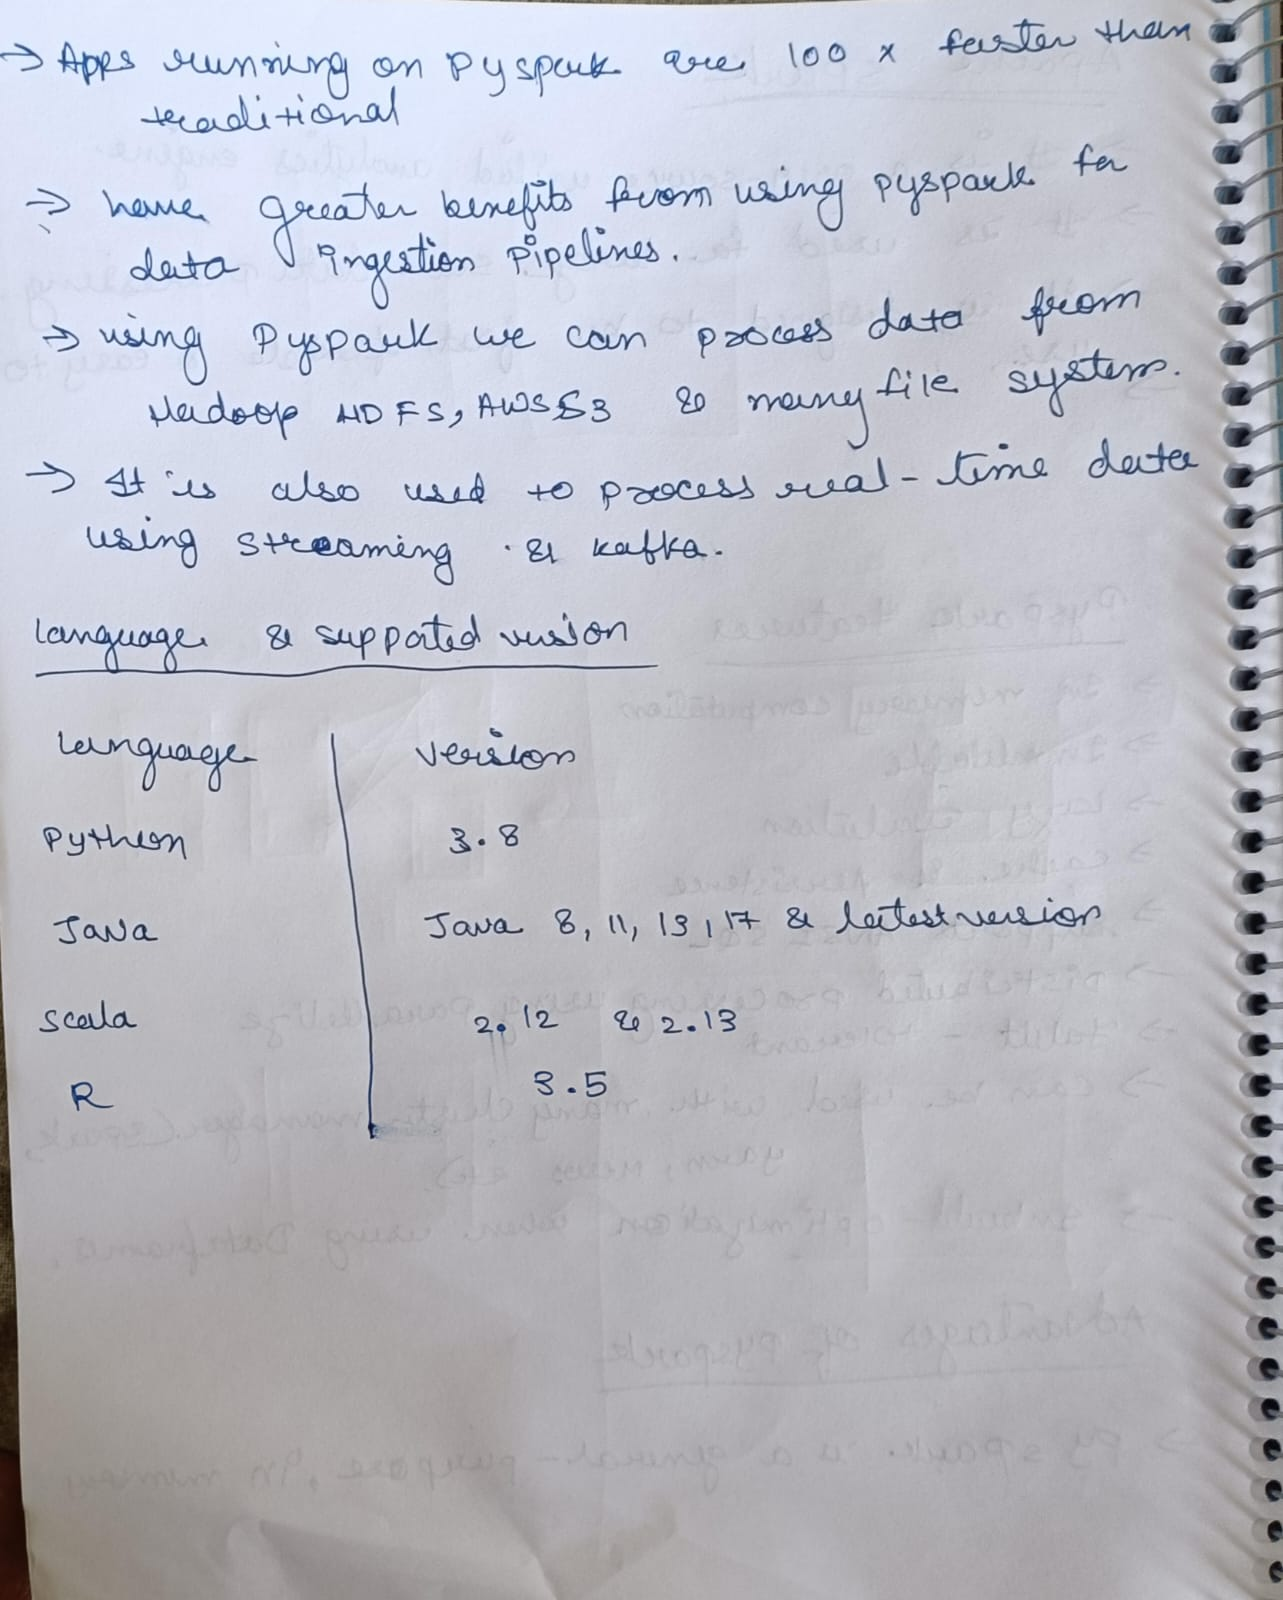 → Apps running on Pyspark are 100 x faster than
traditional
→ have greater benefits from using pyspark for
data ingestion Pipelines.
→ using Pyspark we can process data from
Hadoop HDFS, AWS S3 & many file system.
→ It is also used to process real-time data
using streaming & kafka.
language & supported version
language | version
Python | 3.8
Java | Java 8, 11, 13, 17 & latest version
scala | 2.12 & 2.13
R | 3.5